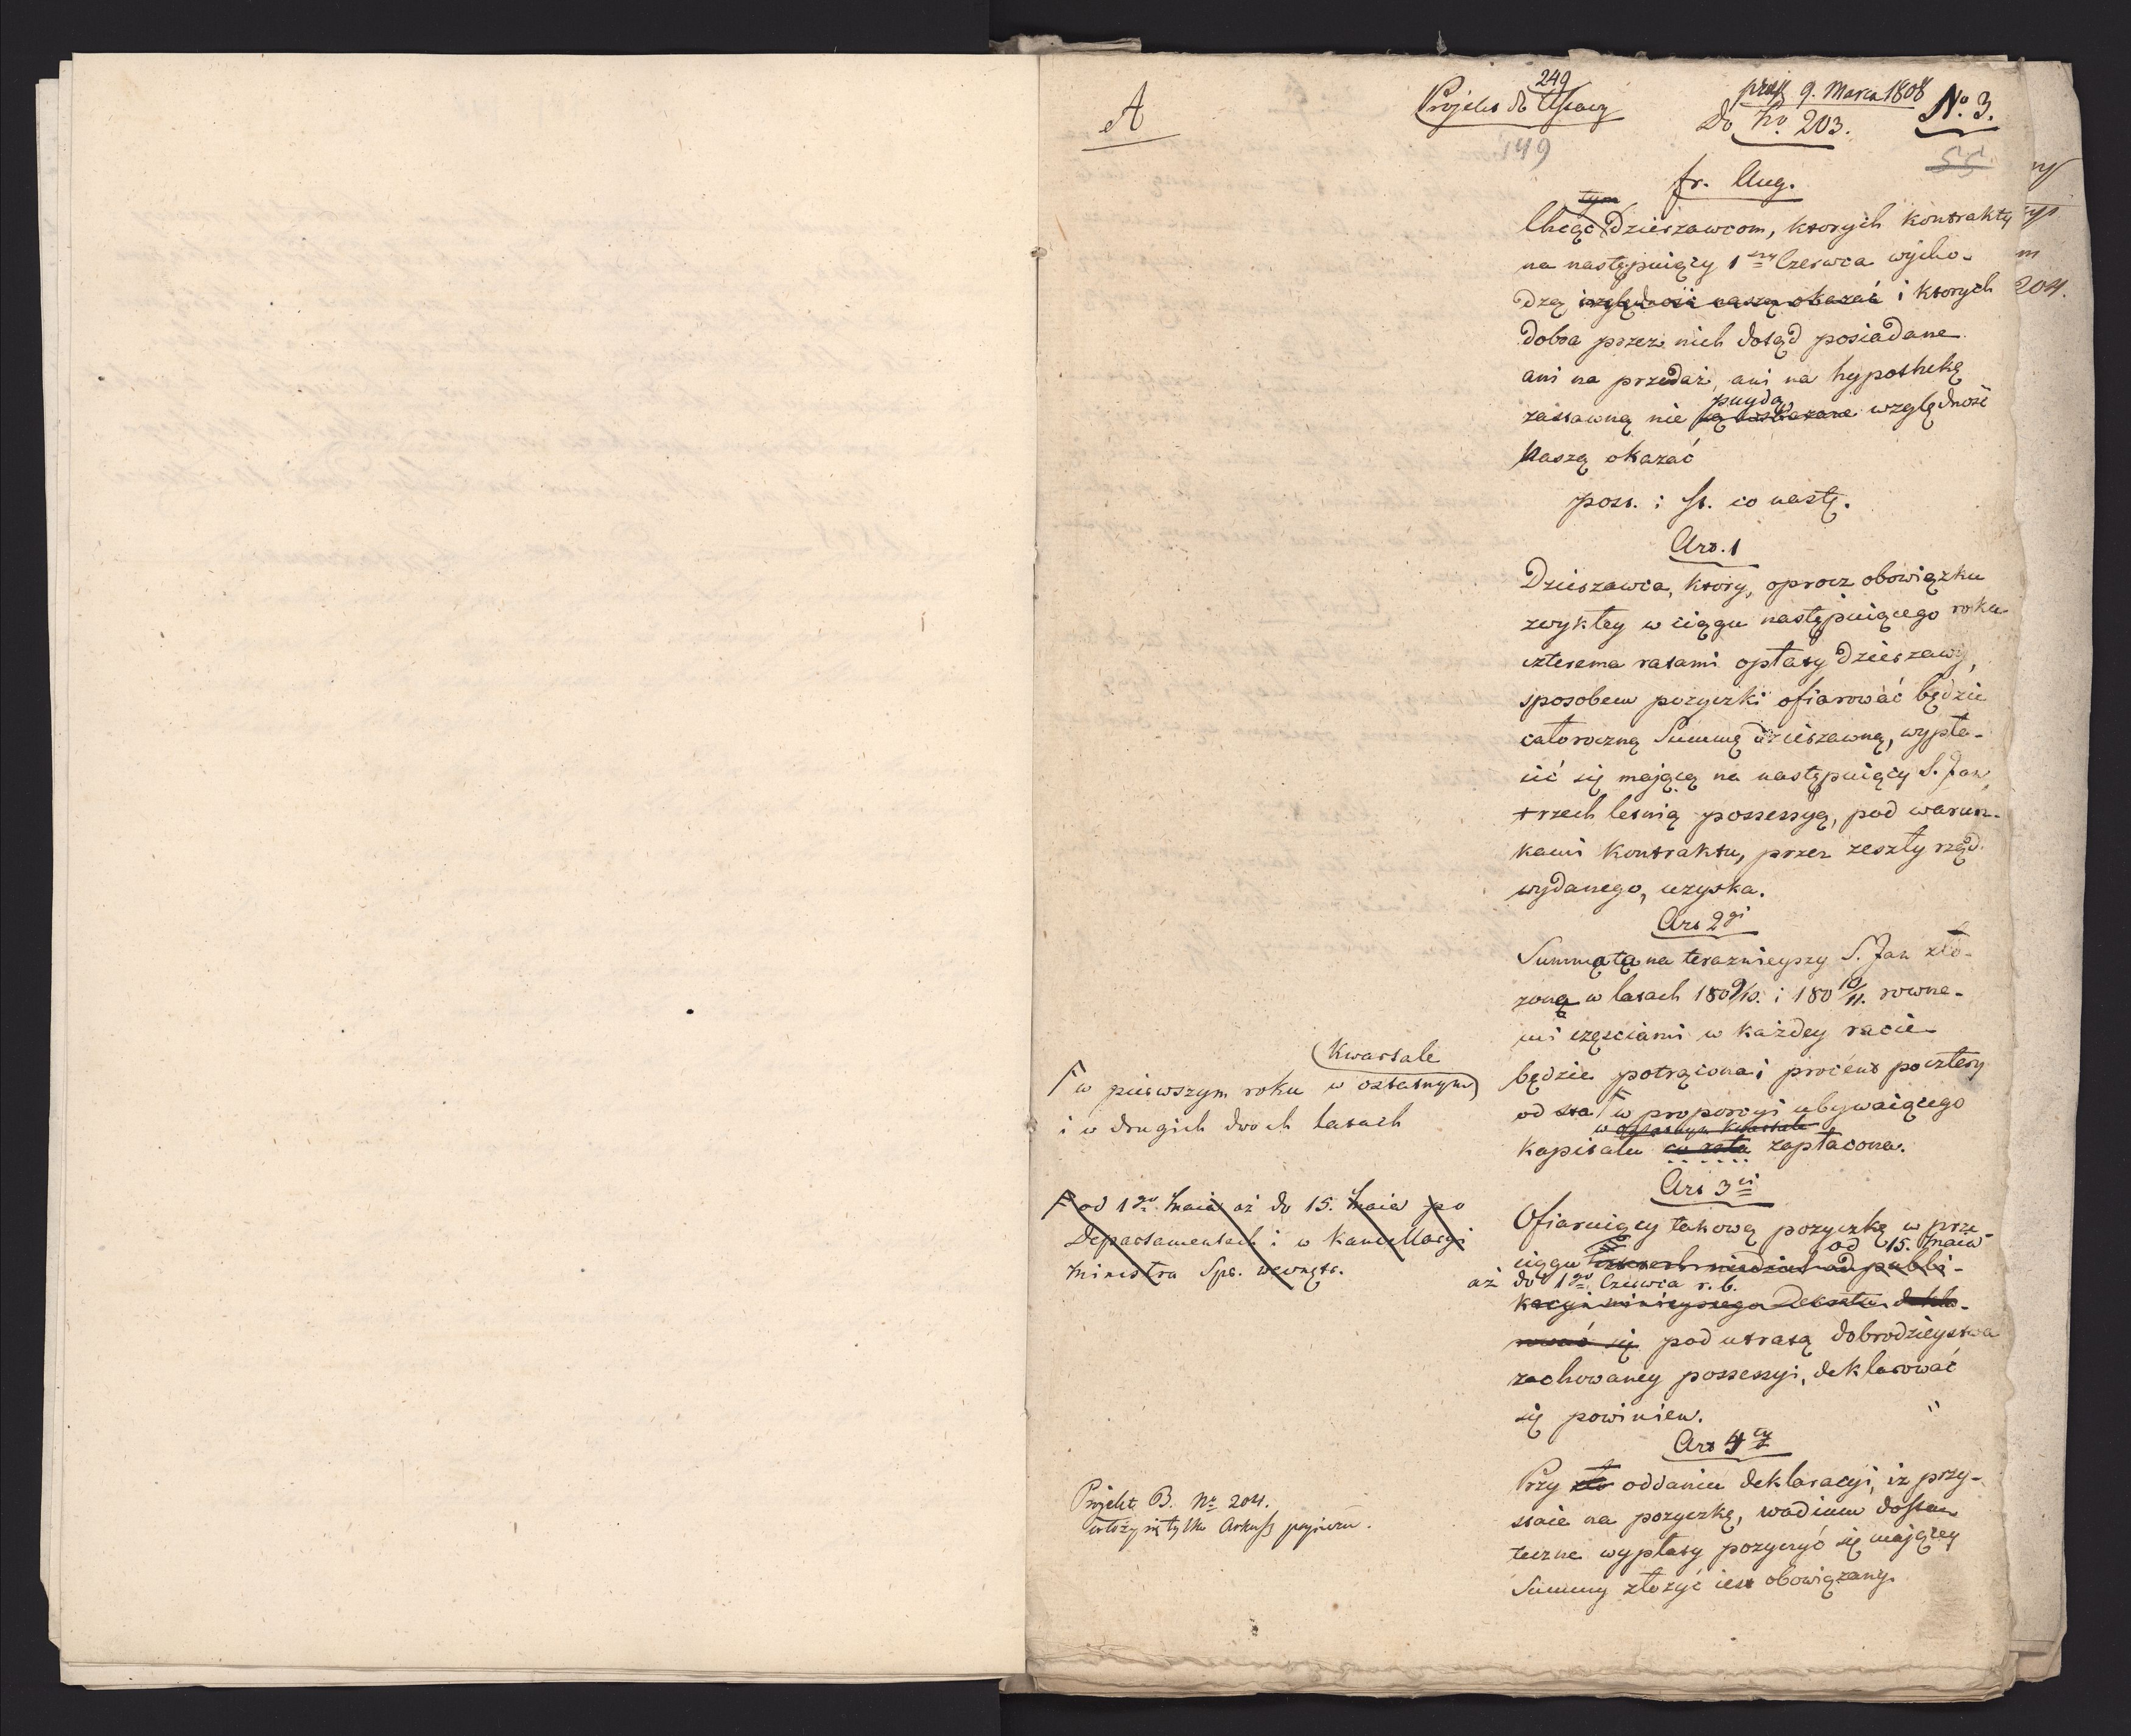 A
249
Projekt do Ustawy
149
9. Marca 1808
Do No 203.
No. 3.
55.
fr. Aug.
tym
Chcąc Dzierzawcom, ktorych kontrakty
na następuiący 1 Czerwca wycho-
dzą względność naszą okazać i ktorych
dobra przez nich dotąd posiadane
ani na przedaż, ani na hypotheką
puydą
zastawną nie są wskazane względność
Naszą okazać
post. i st. co nastę.
Art. 1
Dzierzawca, ktory, oprocz obowiązku
zwykłey w ciągu następuiącego roku
czterema ratami opłaty Dzierzawy,
sposobem pozyczki ofiarować będzie
całoroczną Summę dzierzawną, wypła-
cić się mającą na następuiący S. Jan,
trzech letnią possessyą, pod warun-
kami Kontraktu, przez zeszły rząd
wydanego, uzyska.
Art 2gi
Summa ta na teraznieyszy S. Jan zło-
zona w latach 1809/10. i 1810/11. rowne-
mi częściami w każdey racie
będzie potrąciona i procent po cztery
od sta Γ w proporcyi ubywaiącego
w ostatnym Kwartale
kapitału co rata zapłacona.
Kwartale
Γ w pierwszym roku w ostatnym
i w drugich dwoch latach
Art 3ci
Ofiaruiący takową pozyczkę w prze-
od 15. Maia
ciągu czterech niedziel od publi-
aż do 1go Czerwca r. b.
kacyi ninieyszego Dekretu dekla-
rować się pod utratą dobrodzieystwa
zachowaney possessyi, deklarować
się powinien.
Γ od 1go Maia aż do 15. Maia po
Departamentach i w Kancellaryi
Ministra Spr. wewnętr.
Art 4ty
Przy zło oddaniu deklaracyi, iz przy-
staie na pozyczkę, wadium dosta-
teczne wypłaty pozyczyć się mającey
Summy złozyć iest obowiązany.
Projekt B. No 204.
włozy się tylko Arkusz papieru.
ny
m
204.